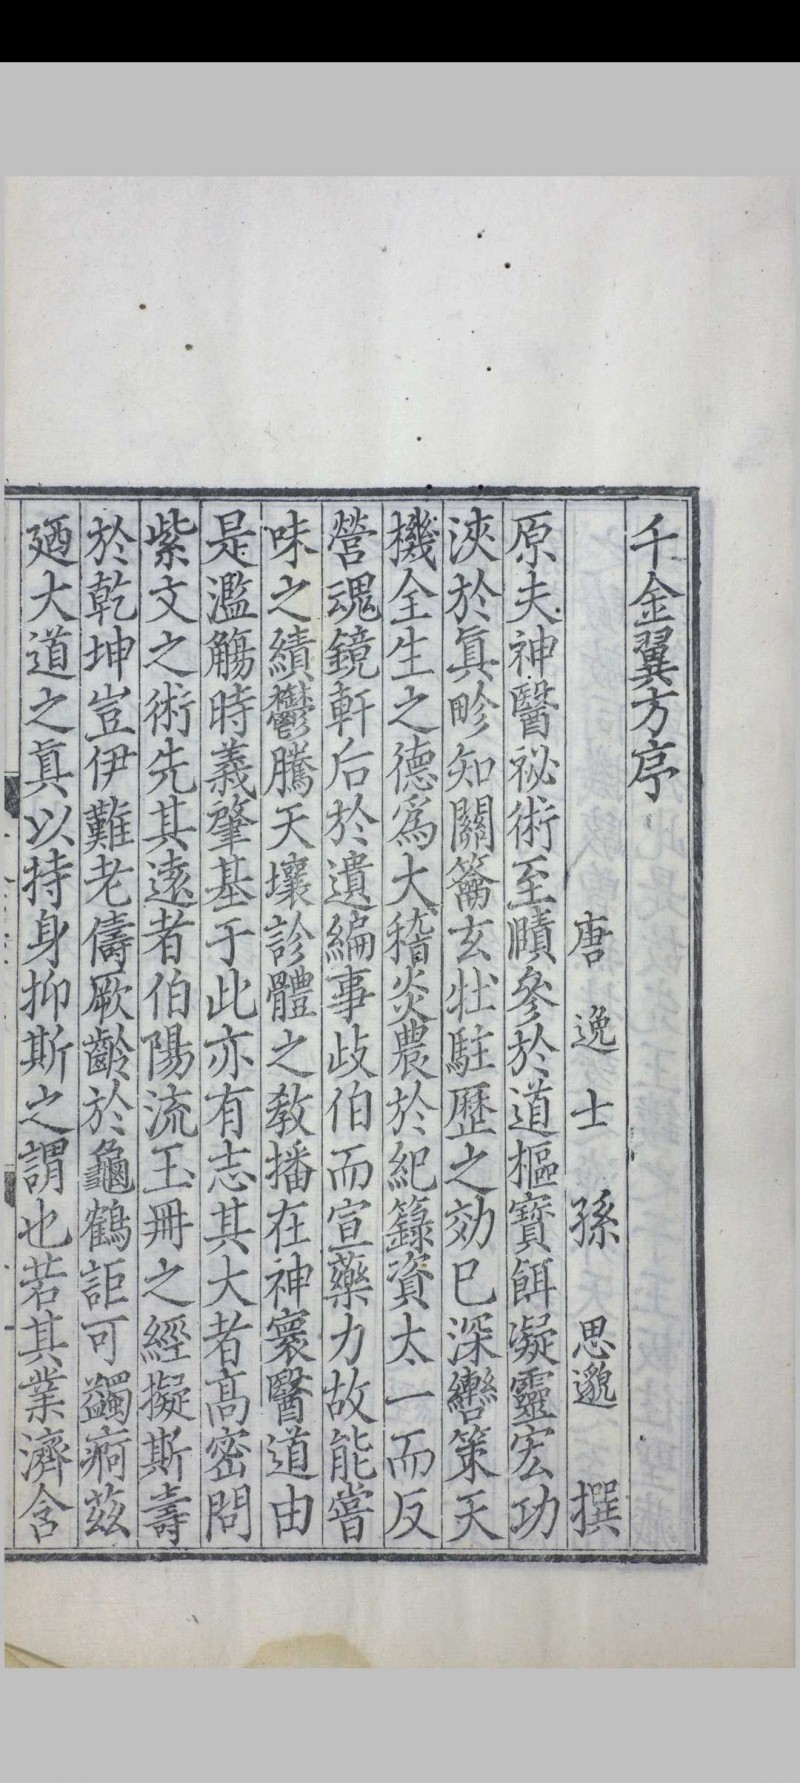 千金翼方序
唐逸士孫思邈撰
原夫神醫祕術至賾參於道樞寶餌凝靈宏功
浹於眞畛知關籥玄牡駐歷之効已深轡策天
機全生之德爲大稽炎農於紀籙資太一而反
營魂鏡軒后於遺編事歧伯而宣藥力故能嘗
味之績鬱騰天壤診體之教播在神寰醫道由
是濫觴時義肇基于此亦有志其大者高密問
紫文之術先其遠者伯陽流玉冊之經擬斯壽
於乾坤豈伊難老儔厥齡於龜鶴詎可蠲痾茲
廼大道之眞以持身抑斯之謂也若其業濟含